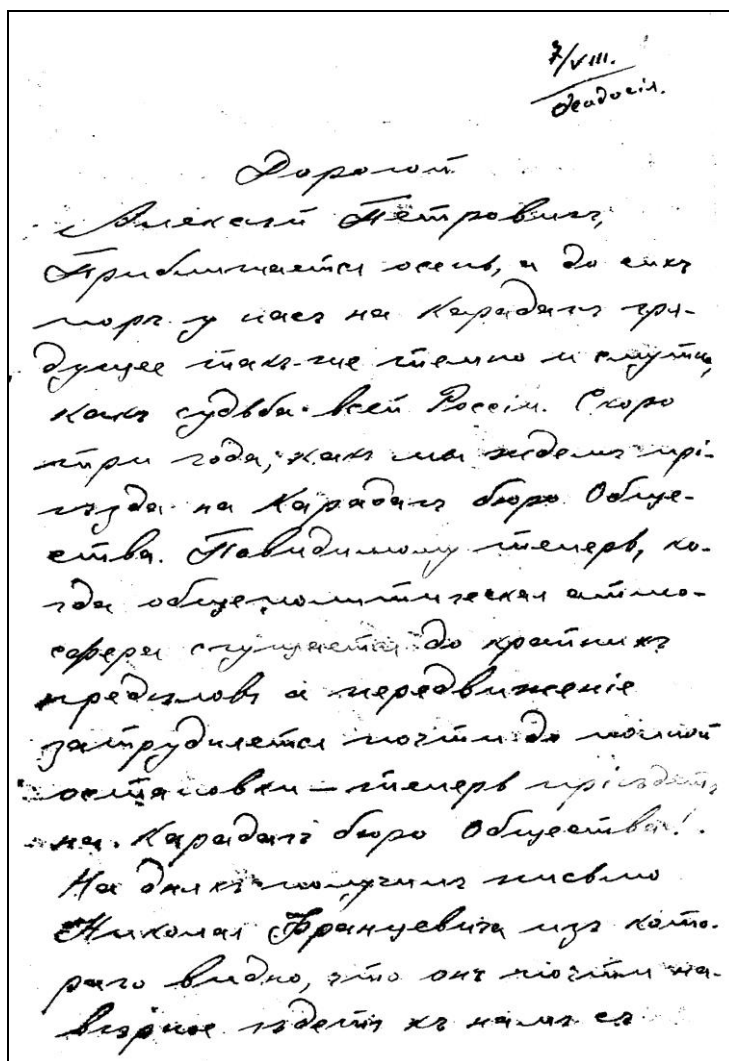 7/VIII.
Ѳеодосія.
Дорогой
Алексѣй Петровичъ,
Приближается осень, а до сихъ
поръ у насъ на Карадагѣ гря-
дущее такъ-же темно и смутно,
какъ судьба всей Россіи. Скоро
три года, какъ мы ждемъ прі-
ѣзда на Карадагъ бюро Обще-
ства. Повидимому теперь, ко-
гда общеполитическая атмо-
сфера сгущается до крайнихъ
предѣловъ а передвиженіе
затрудняется почти до полной
остановки — теперь пріѣдетъ
на Карадагъ бюро Общества!.
На дняхъ получилъ письмо
Николая Францевича изъ кото-
раго видно, что онъ почти на-
вѣрное ѣдетъ къ намъ съ